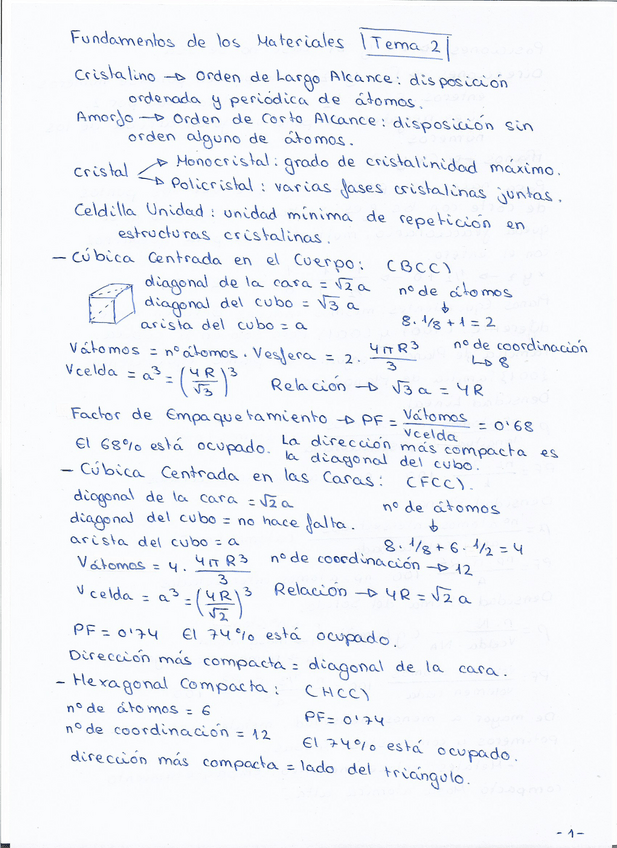 Fundamentos de los Materiales Tema 2
Cristalino → Orden de Largo Alcance: disposición
ordenada y periódica de átomos.
Amorfo → Orden de Corto Alcance: disposición sin
orden alguno de átomos.
Cristal → Monocristal: grado de cristalinidad máximo.
→ Policristal: varias fases cristalinas juntas.
Celdilla Unidad: unidad mínima de repetición en
estructuras cristalinas.
- Cúbica Centrada en el Cuerpo: (BCC)
diagonal de la cara = √2 a nº de átomos
diagonal del cubo = √3 a ↓
arista del cubo = a 8 · 1/8 + 1 = 2
Vátomos = nº átomos · Vesfera = 2 · 4πR³/3 nº de coordinación
↳ 8
Vcelda = a³ = (4R/√3)³ Relación → √3 a = 4R
Factor de Empaquetamiento → PF = Vátomos/Vcelda = 0'68
El 68% está ocupado. La dirección más compacta es
la diagonal del cubo.
- Cúbica Centrada en las Caras: (FCC).
diagonal de la cara = √2 a nº de átomos
diagonal del cubo = no hace falta. ↓
arista del cubo = a 8 · 1/8 + 6 · 1/2 = 4
Vátomos = 4 · 4πR³/3 nº de coordinación → 12
Vcelda = a³ = (4R/√2)³ Relación → 4R = √2 a
PF = 0'74 El 74% está ocupado.
Dirección más compacta = diagonal de la cara.
- Hexagonal Compacta: (HCC)
nº de átomos = 6 PF = 0'74
nº de coordinación = 12 El 74% está ocupado.
dirección más compacta = lado del triángulo.
-1-